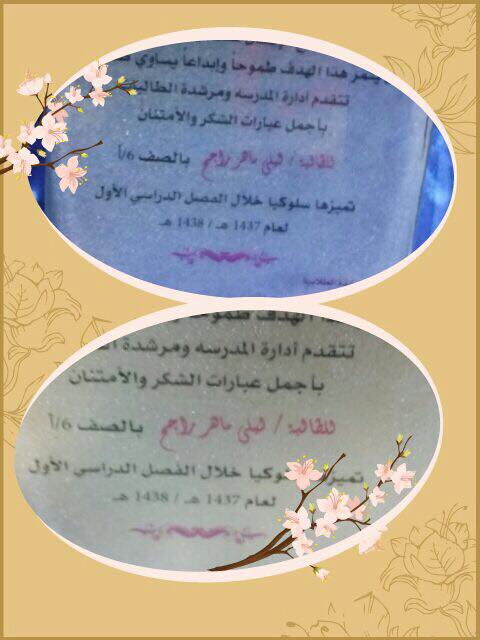 يثمر هذا الهدف طموحاً وإبداعاً يساوي
تتقدم أدارة المدرسه ومرشدة الطالبا
بأجمل عبارات الشكر والأمتنان
للطالبة / ليلى ماهر راجح بالصف 6/أ
تميزها سلوكيا خلال الفصل الدراسي الأول
لعام 1437 هـ / 1438 هـ
الهدف طموحا
تتقدم أدارة المدرسه ومرشدة
بأجمل عبارات الشكر والأمتنان
للطالبة / ليلى ماهر راجح بالصف 6/أ
تميزها سلوكيا خلال الفصل الدراسي الأول
لعام 1437 هـ / 1438 هـ